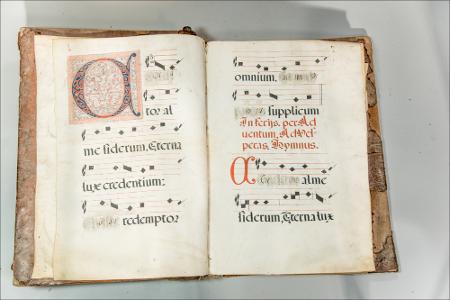 C
tor al
me siderum, Eterna
lux credentium:
redemptor
omnium,
supplicum
In ferijs, per Ad
uentum, Ad Ves
peras, Hymnus.
C alme
siderum, Eterna lux